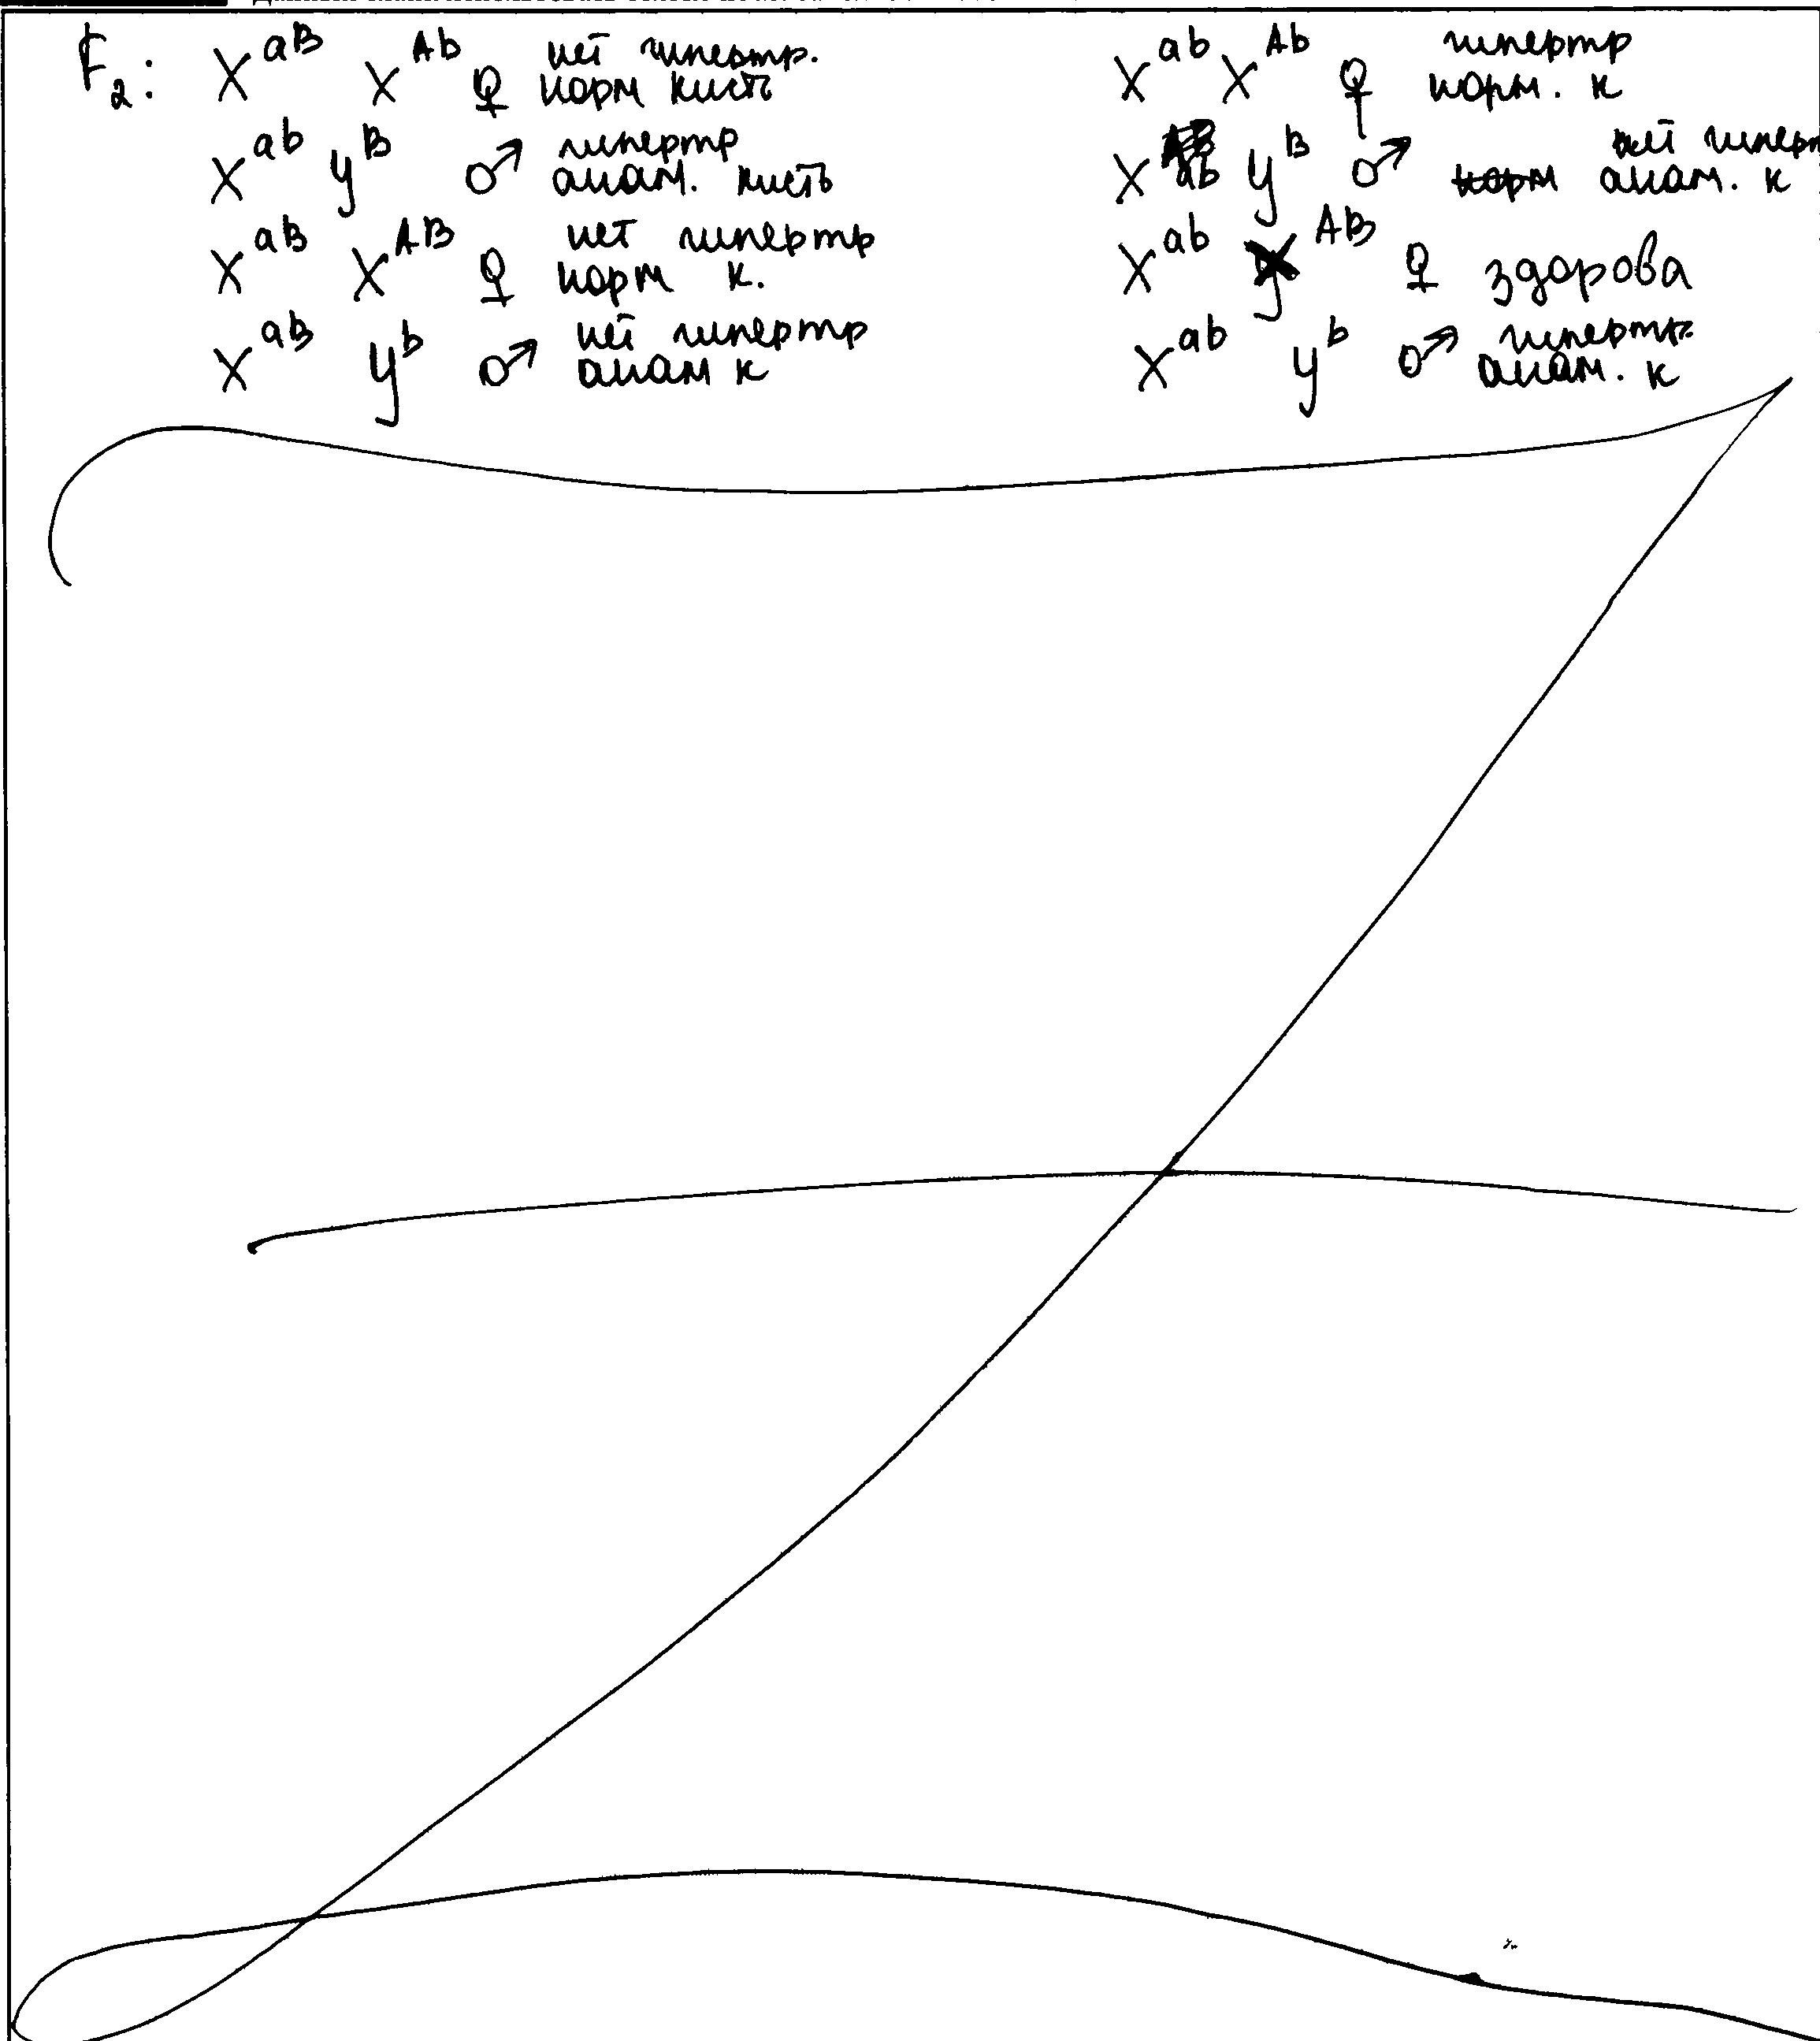 F₂: X^aB X^Ab ♀ нет гипертр. норм кисть
X^ab y^B ♂ гипертр аном. кисть
X^aB X^AB ♀ нет гипертр норм к.
X^aB y^b ♂ нет гипертр аном к
X^ab X^Ab ♀ гипертр норм. к
X^ab y^B ♂ нет гиперт норм аном. к
X^ab y^AB ♀ здорова
X^ab y^b ♂ гипертр. аном. к